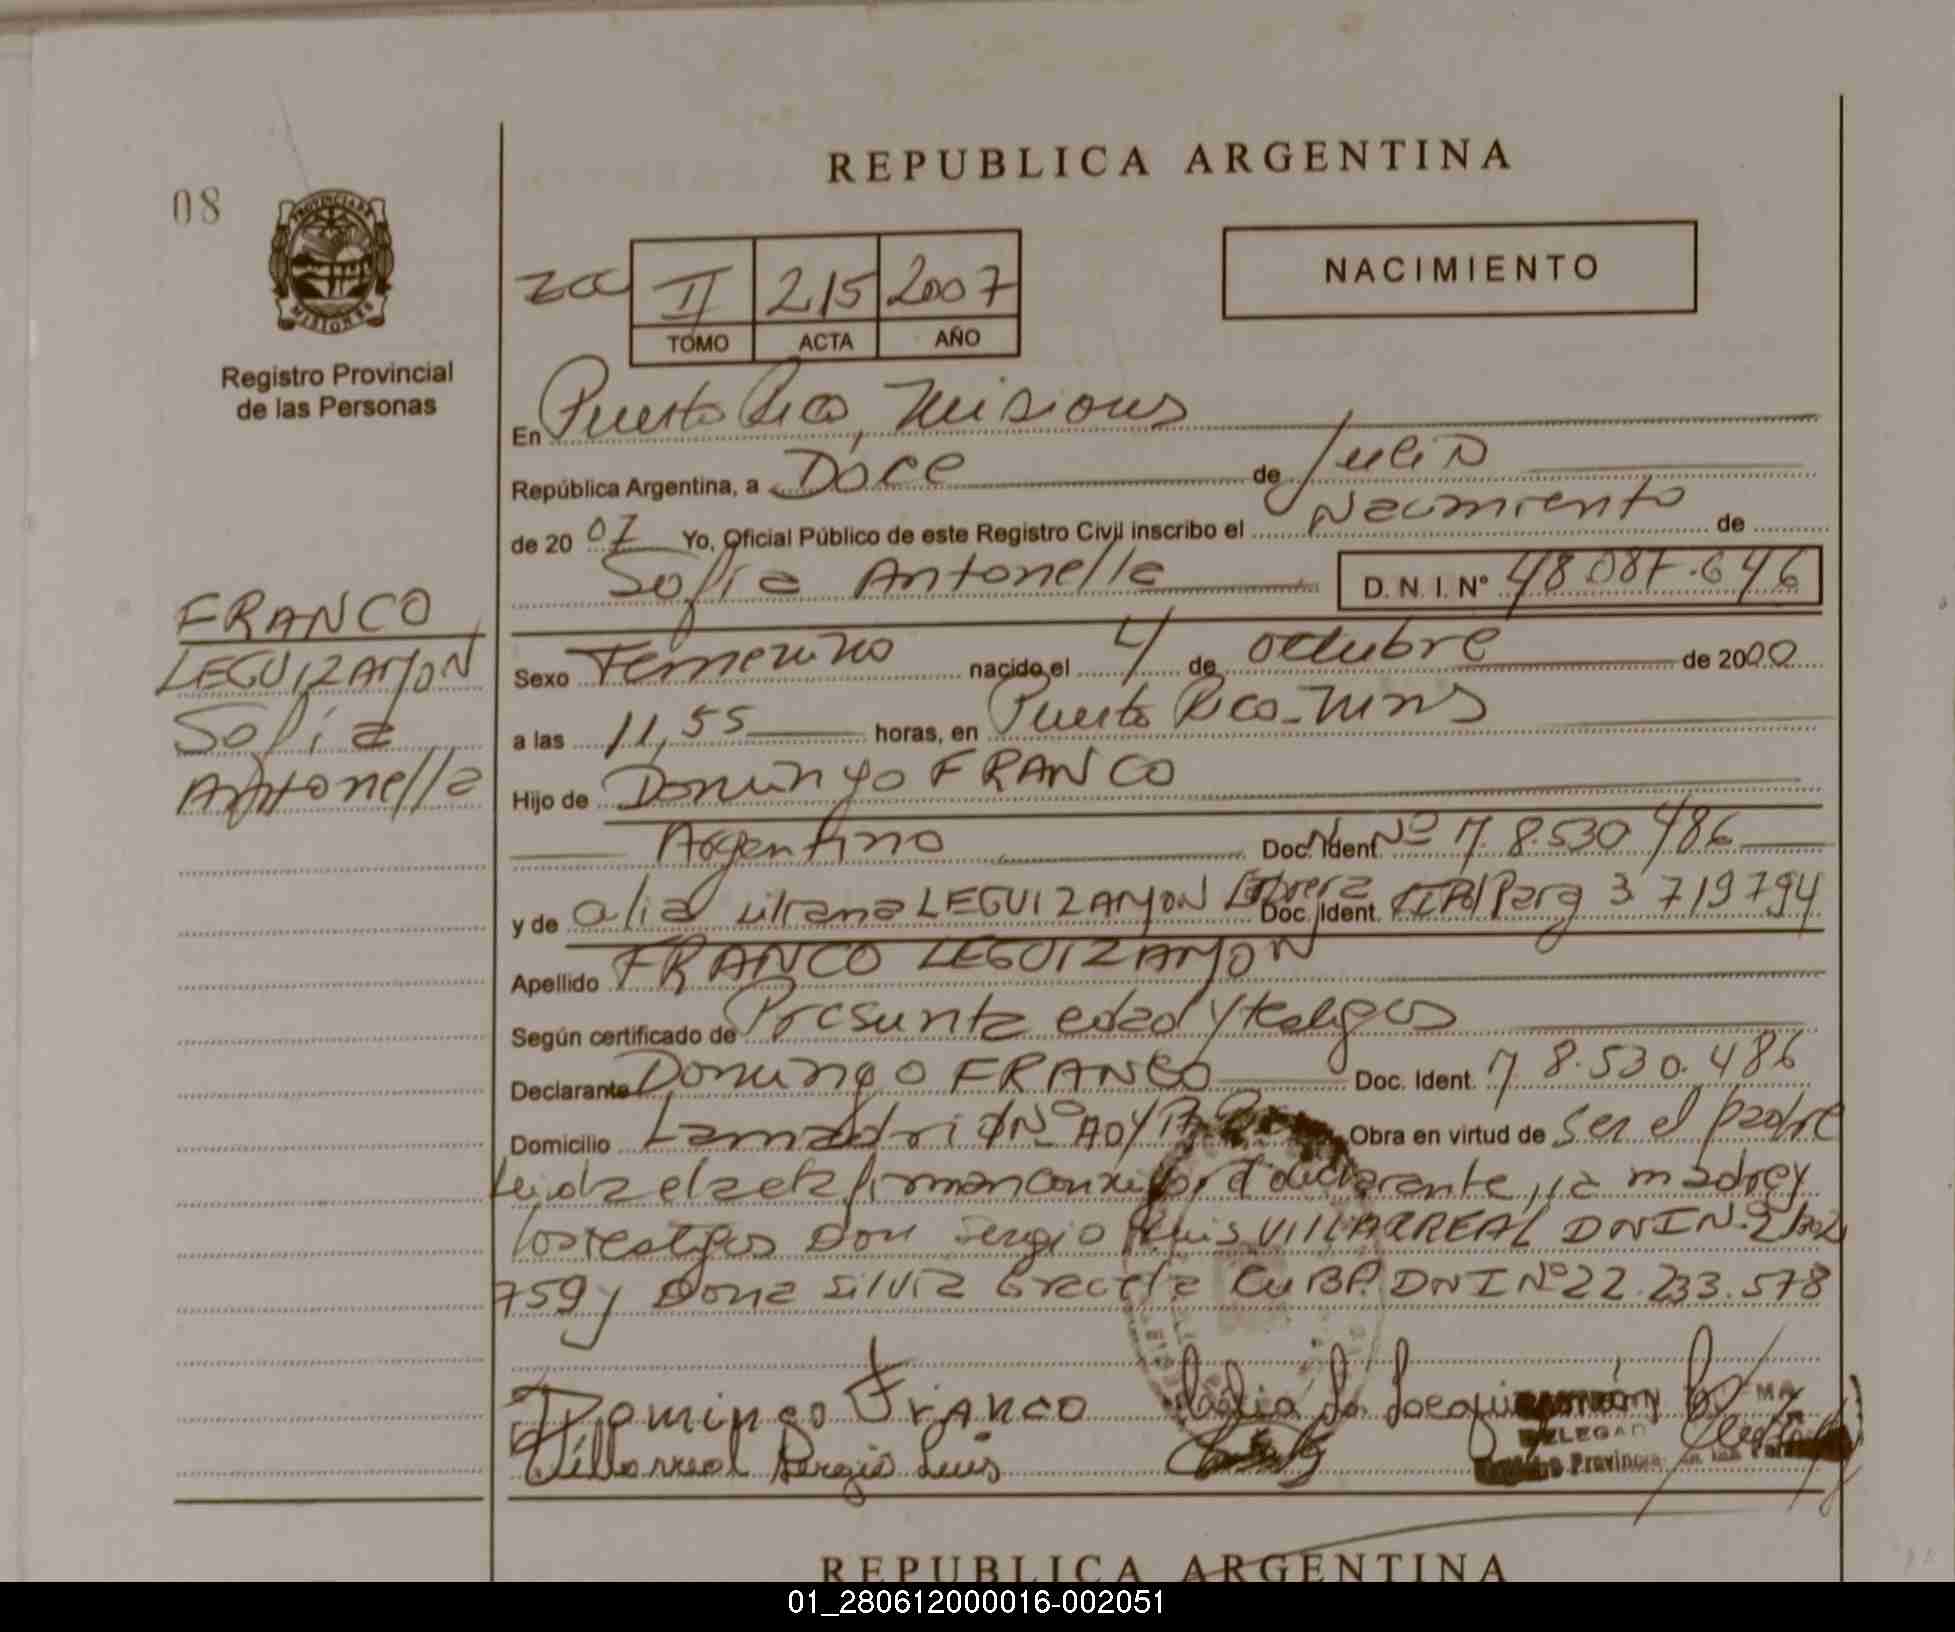 REPUBLICA ARGENTINA
08
PROVINCIA DE
MISIONES
Registro Provincial
de las Personas
II 215 2007
TOMO ACTA AÑO
NACIMIENTO
En Puerto Rico, Misiones
República Argentina, a Doce de Julio
de 20 07 Yo, Oficial Público de este Registro Civil inscribo el Nacimiento de
Sofia Antonella D.N.I. Nº 48.087.646
FRANCO
LEGUIZAMON
Sofia
Antonella
Sexo Femenino nacido el 4 de octubre de 2000
a las 11,55 horas, en Puerto Rico - Mnes
Hijo de Domingo FRANCO
Argentino Doc. Ident. Nº 8.530.486
y de Liliana LEGUIZAMON Cabrera Doc. Ident. Parg 3 719794
Apellido FRANCO LEGUIZAMON
Según certificado de Presunta edad y testigos
Declarante Domingo FRANCO Doc. Ident. 8.530.486
Domicilio Lamadrid Nº Obra en virtud de ser el padre
Leida el acta firman conmigo, el declarante, la madre y
los testigos Don Sergio Luis VILLARREAL DNI N.
759 y Doña Silvia Graciela DNI Nº 22.233.578
Domingo Franco
Villarreal Sergio Luis
DELEGAD
Provincia de las
REPUBLICA ARGENTINA
01_280612000016-002051